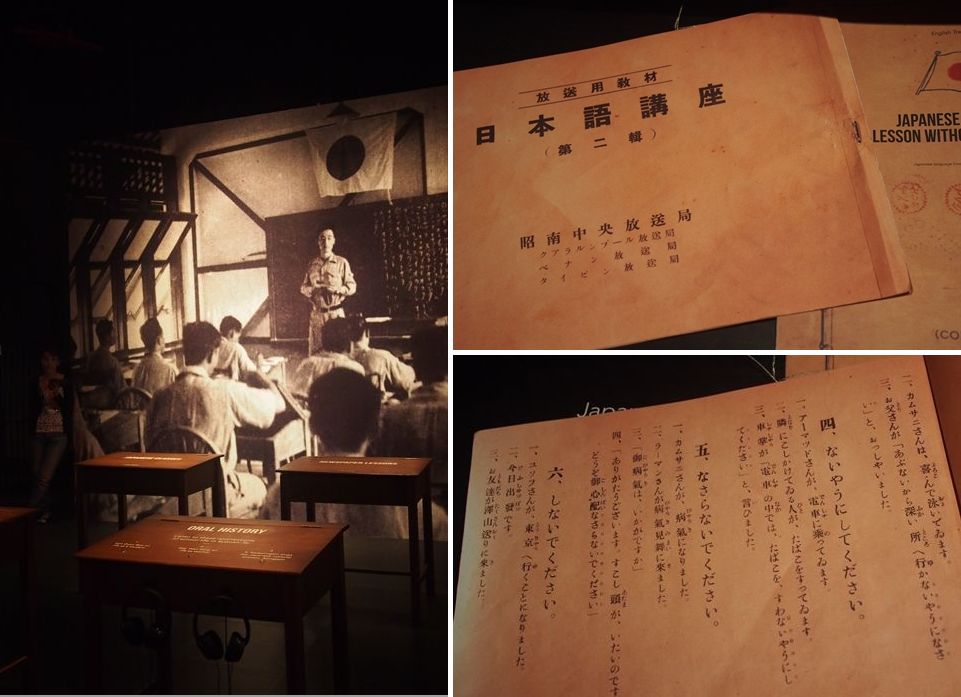 ORAL HISTORY
NEWSPAPER LESSONS
放送用教材
日本語講座
(第二輯)
昭南中央放送局
クアラルンプール放送局
ペナン放送局
タイピン放送局
JAPANESE
LESSON WITHO
一、カムサニさんは、喜んで泳いでゐます。
三、お父さんが「あぶないから深い所へ行かないやうになさ
い」と、おつしやいました。
四、ないやうにしてください。
一、アーマッドさんが、電車に乗てゐます。
二、隣にこしかけてゐる人が、たばこをすつてゐます。
三、車掌が「電車の中では、たばこを、すわないやうにし
てください」と、言ひました。
五、なさらないでください。
一、カムサニさんが、病氣になりました。
二、ラーマンさんが病氣見舞に來ました。
三、「御病氣は、いかがですか」
四、「ありがたうございます。すこし頭が、いたいのです
どうぞ御心配なさらないでください」
六、しないでください。
一、ユソフさんが、東京へ行くことになりました。
二、今日出發です。
三、お友達が澤山送りに來ました。